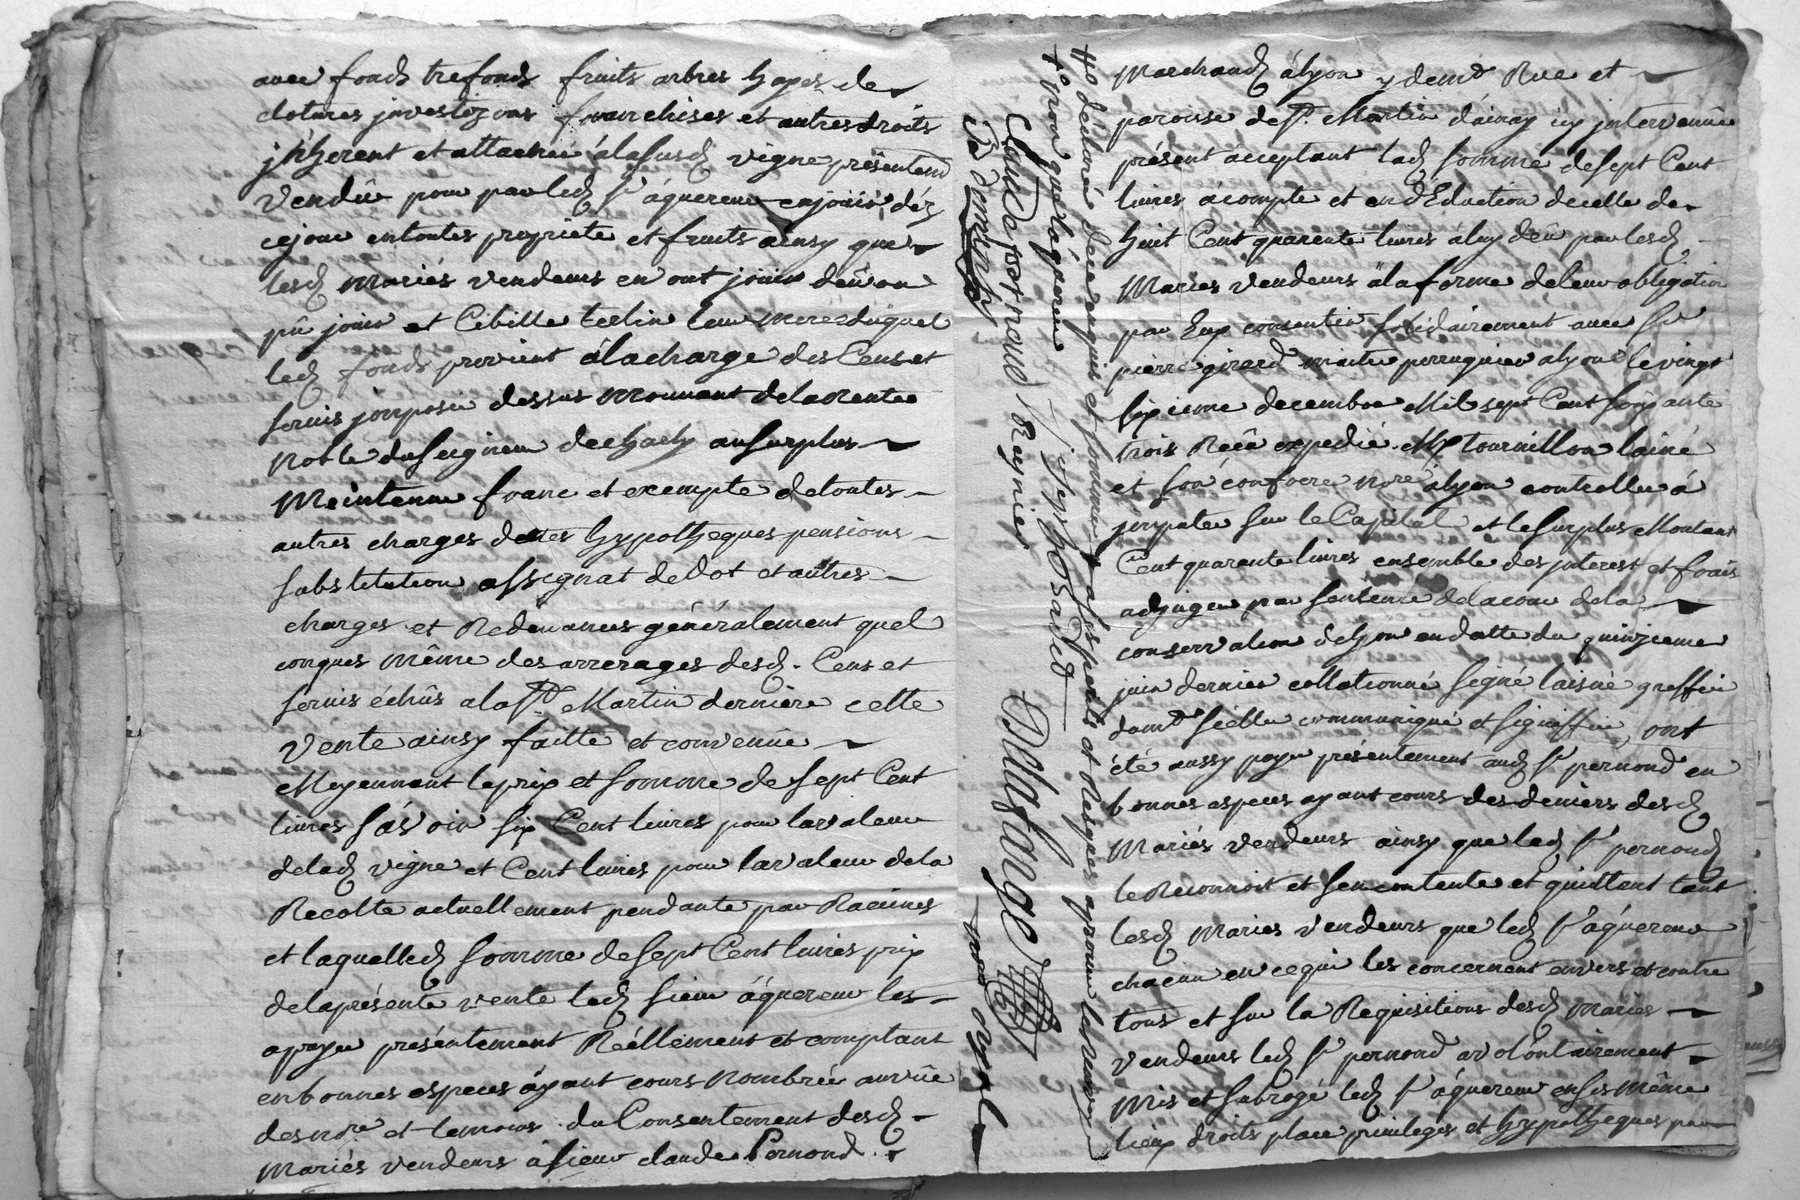 avec fonds trefonds fruits arbres hayes de
clotures jnvestizons franchises et autres droits
jnherent et attachée a la susd vigne présentem
vendüe pour par led Sr áquereur en joüir déz
ce jour en toutes proprieté et fruits ainsy que
lesd mariés vendeurs en ont joüir deü ou
pü joüir et Cibille terlin leur mere duquel
led fonds provient á la charge des Cens et
servis jmposée dessus mouvant de la Rente
Noble du Seigneur de au Surplus
Maintenue franc et exempte de toutes
autres charges dettes hypotheques pensions
substitution assignat de dot et autres
charges et Redevances généralement quel
conques même des arrerages desd. Cens et
servis échûs a la St. Martin derniere cette
vente ainsy faitte et convenüe
Moyennant le prix et somme de sept Cent
livres sávoir six Cent livres pour la valeur
de lad vigne et Cent livres pour la valeur de la
Recolte actuellement pendante par Racines
et laquelled somme de sept Cent livres prix
de la présente vente led sieur áquereur les
a payée présentement Réellement et comptant
en bonnes especes áyant cours Nombrée au vüe
des nore. et temoins du Consentement desd
Mariés vendeurs á sieur claude Pernond.
claude pernond Reynier
j joseph Gavet
Dellafange
Marchand á lyon y demt Rue et
paroisse de St. Martin d'ainay icy jntervenüe
présent acceptant lad somme de sept Cent
livres á compte et en dEduction de celle de
huit Cent quarente livres á luy deü par lesd
Mariés vendeurs á la forme de leur obligation
par Eux consentie solidairement avec Sr
pierre girard maitre perruquier a lyon le vingt
sixieme decembre Mil sept Cent soixante
trois Reçü expedié Me tournillon lainé
et son confrere nore. á lyon controllée á
jmputer sur le Capital et le surplus Montant
Cent quarente livres ensemble des jnterest et frais
adjugée par sentence de la cour de la
conservation de lyon en datte du quinzieme
juin dernier collationné signé laisné greffier
düemt. scellée communiqué et signiffiée, ont
été aussy payée présentement aud Sr pernond en
bonnes especes ayant cours des deniers desd
Mariés vendeurs ainsy que led Sr pernond
le Reconnoit et s'en contente et quittent tant
lesd Mariés vendeurs que led Sr áquereur
chacun en ce qui les concernent envers et contre
tous et sur la Requisitions desd mariés
vendeurs led Sr pernond a volontairement
Mis et subrogé led Sr áquereur en ses même
lieux droits place privileges et hypotheques par